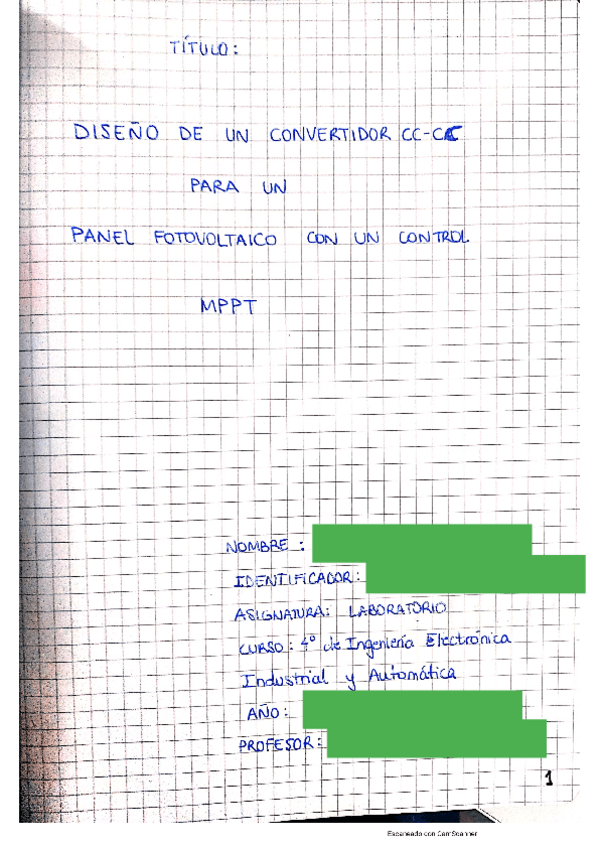 TÍTULO:
DISEÑO DE UN CONVERTIDOR CC-CC
PARA UN
PANEL FOTOVOLTAICO CON UN CONTROL
MPPT
NOMBRE :
IDENTIFICADOR:
ASIGNATURA: LABORATORIO
CURSO: 4º de Ingeniería Electrónica
Industrial y Automática
AÑO:
PROFESOR:
1
Escaneado con CamScanner